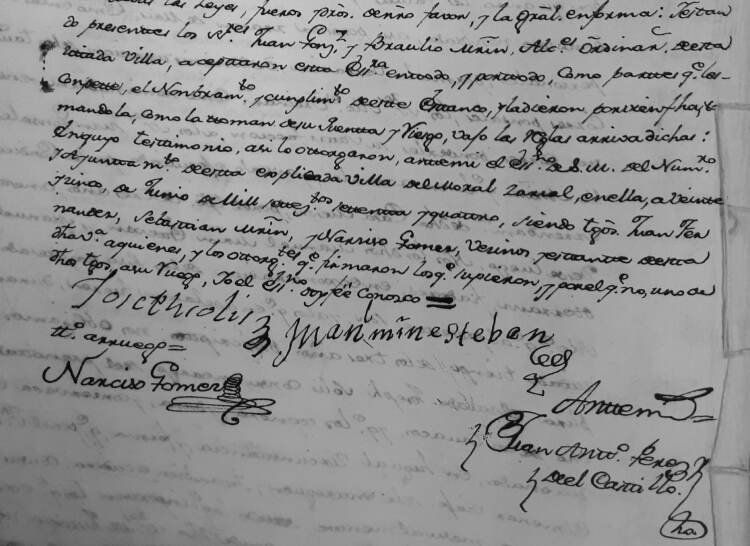 las Leyes, fueros dros. de nro favor, y la gral. en forma: Estan
do presentes los Sres Juan Fonz, y Braulio Mrn, Alces Ordinars de esta
citada Villa, aceptaron esta Essra en todo, y por todo, como partes qe les
compete, el Nombramto y cumplimto de este
mandola, como la toman de su Cuenta y Riesgo, vajo las Reglas arriva dichas:
En cuyo testimonio, asi lo otorgaron, ante mi el Essno de S. M. del Numro
y Ayuntamto de esta explicada Villa del Moral Zarzal, en ella, a veinte
y cinco, de Junio de Mill setezos setenta y quatro, siendo tgos. Juan Fer
nandez, Sebastian Mrn, y Narciso Gomez, Vecinos y estantes de esta
dha va. a quienes, y los otorgtes qe firmaron los qe supieron, y por el qe no, uno de
dhos tgos, a su Ruego, Yo el Essno doy fe conozco =
Joseph Solis
Juan min esteban
tto. a rruego =
Narciso Gomez
Ante mi =
Juan Anto. Perez
del Castillo.